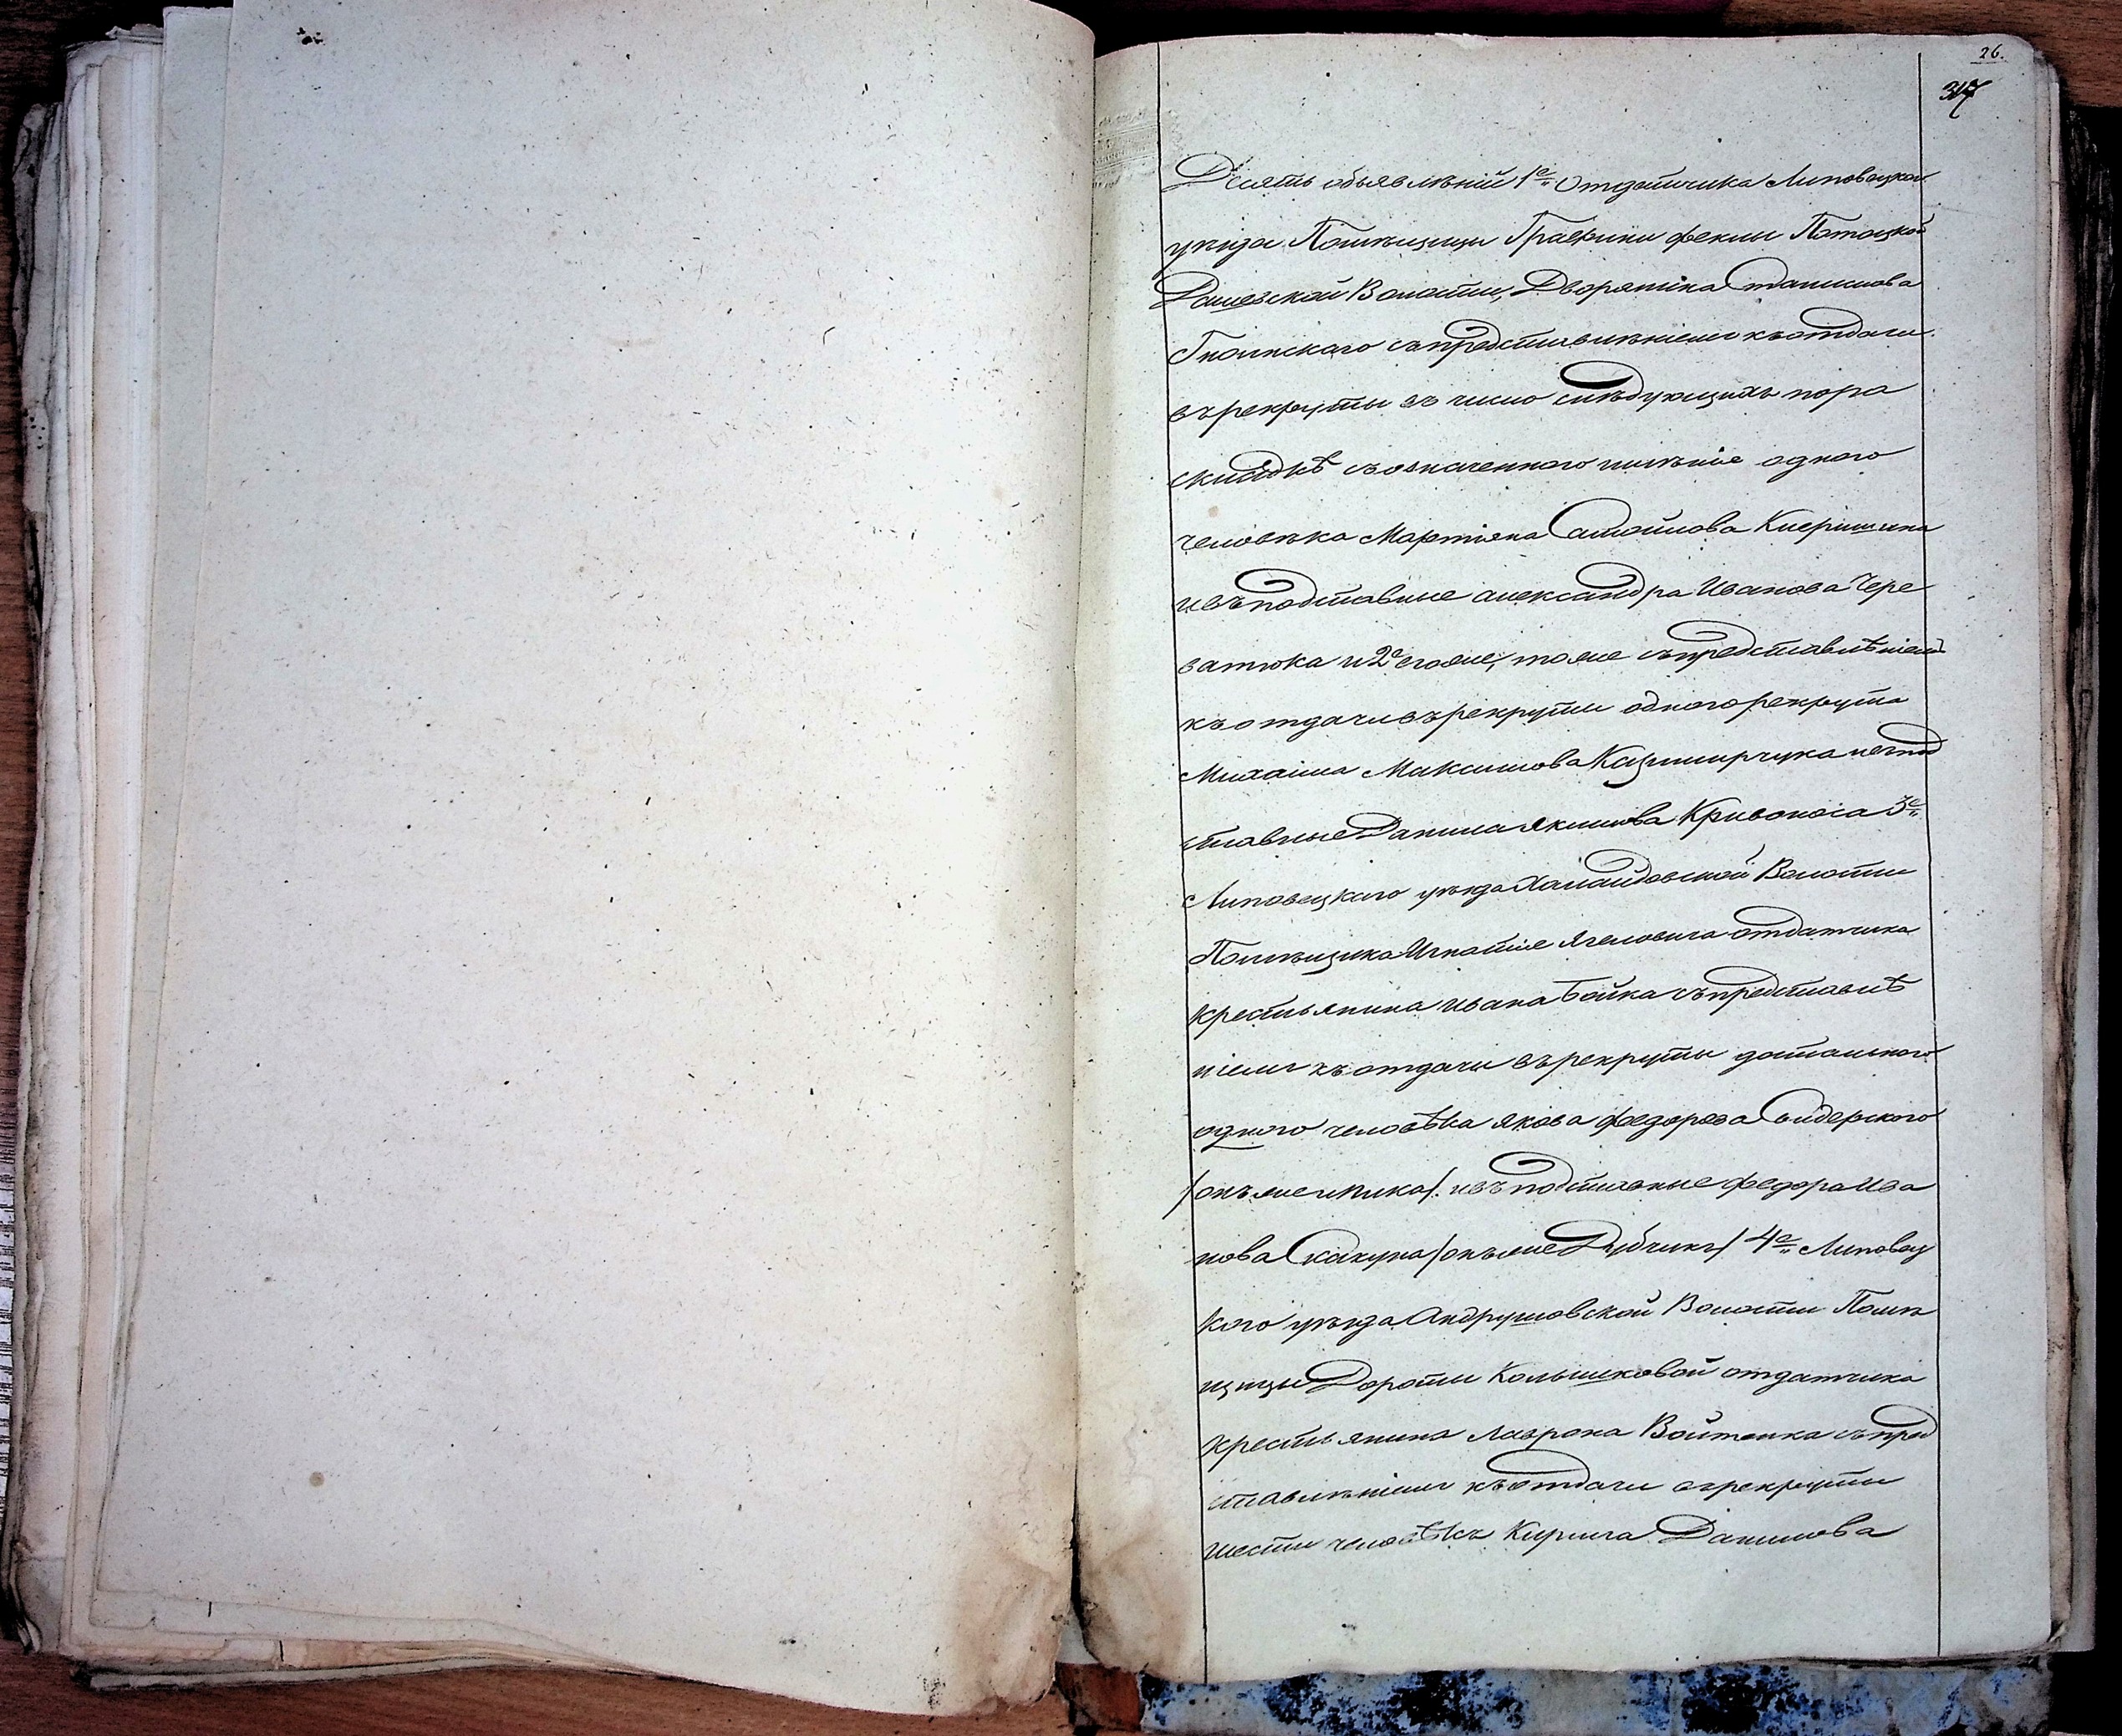 26.
317
Десять объявлѣній 1е Отдатчика Липовецкаго
уѣзда Помѣщицы Графини Феклы Потоцкой
Дашевской Волости, Дворянина Станислова
съпредставлѣніемъ къотдачи
върекруты въ число слѣдующихъ пора
складкѣ съозначенного имѣнія одного
человѣка Мартина Самойлова
ивъподставные александра Иванова Чере
ватюка и 2е егоже, тоже съпредставлѣніемъ
къотдачи върекруты одного рекрута
Михайла Максимова Казимирчука ивъпод
ставные Данила Якимова Кривоноса 3е
Липовецкаго уѣзда Волости
Помѣщика Игнатія отдатчика
крестьянина Ивана Бойка съпредставлѣ
ніемъ къотдачи върекруты достального
одного человѣка Якова Федорова Сидерского
/онъже ника/. ивъподставные Федора Ива
нова Скакуна /онъже Дубчикъ/ 4е Липовец
кого уѣзда Андрушовской Волости Помѣ
щицы Дороты отдатчика
крестьянина Лаврона Войтенка съпред
ставлѣніемъ къотдачи върекруты
шести человѣкъ Кирила Данилова